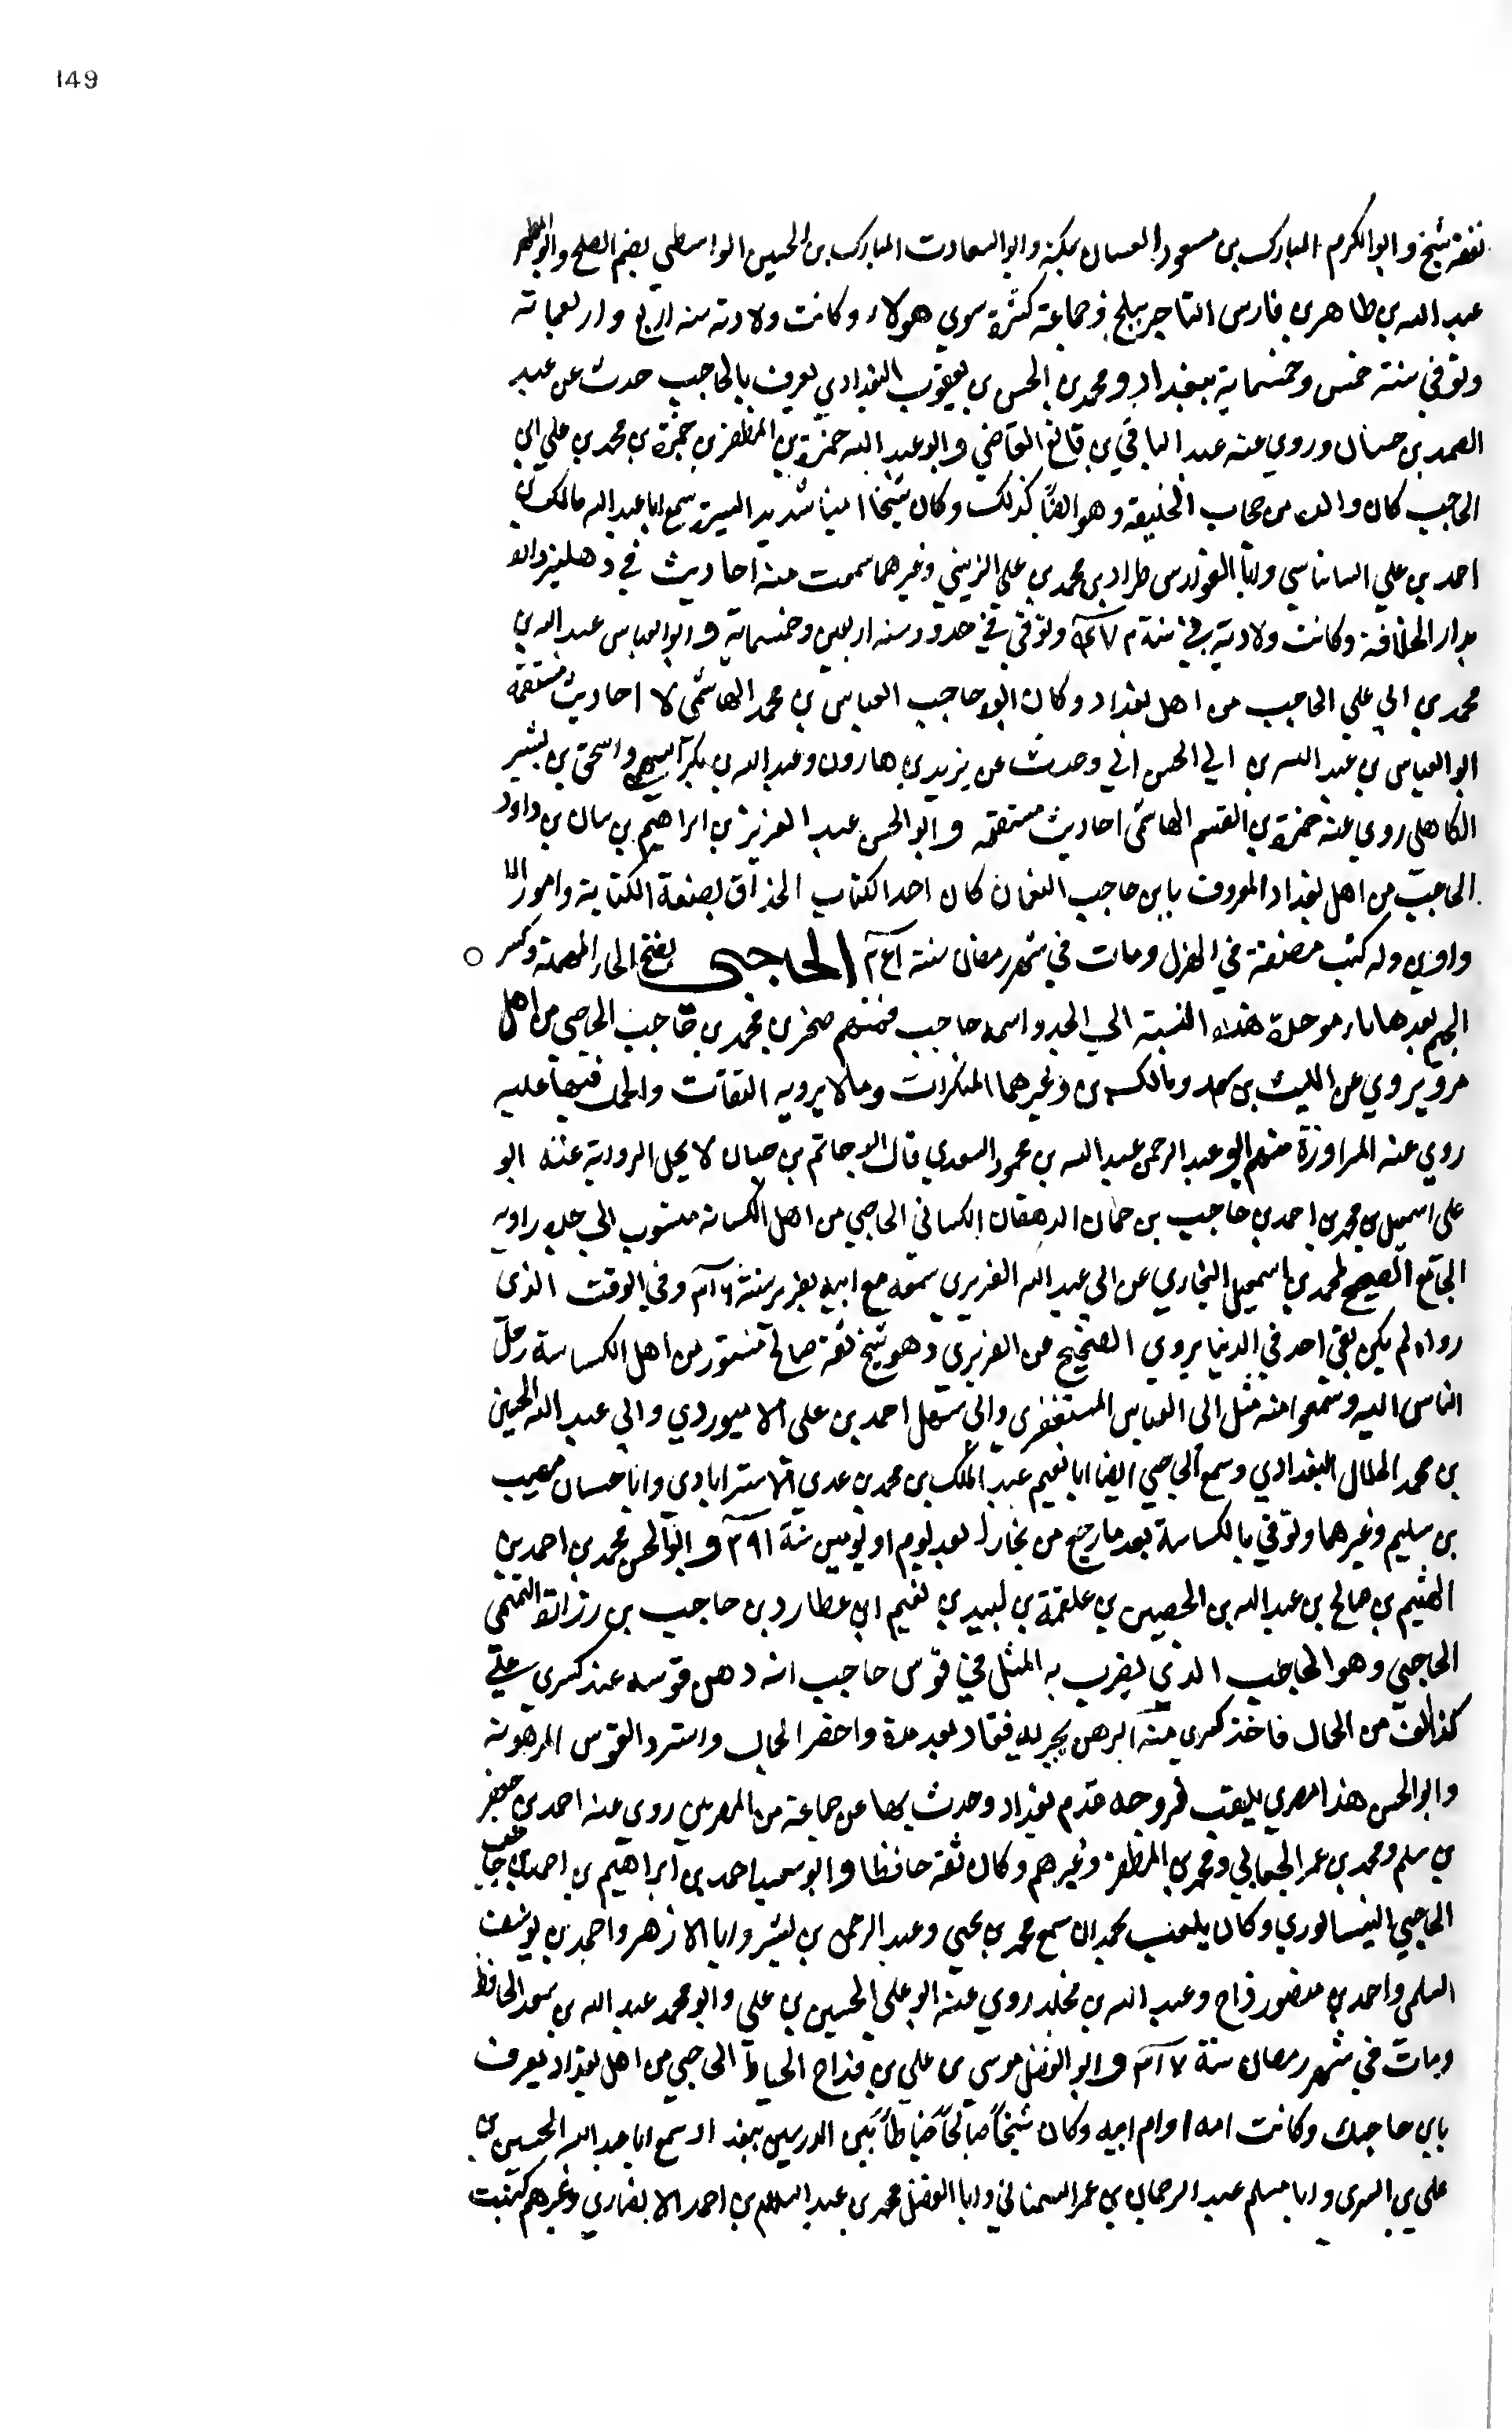 149
ثقة شيخ وابو الكرم المبارك بن مسعود العسال بمكة وابو السعادت المبارك بن الحسين الواسطي بفم الصلح وابو المطهر
عبد الله بن طاهر بن فارس التاجر ببلخ وجماعة كثيرة سوي هولاء وكانت ولادته سنه اربع واربعماته
وتوفي سنة خمس وخمسماية ببغداد ومحمد بن الحسن بن يعقوب البغدادي يعرف بالحاجب حدث عن عبد
الصمد بن حسان وروي عنه عبد الباقي بن قانع القاضي وابو عبد الله حمزة بن المظفر بن حمزة بن محمد بن علي ابن
الحاجب كان والده من حجاب الخليفة وهو ايضاً كذلك وكان شيخا امينا شديد السيرة سمع ابا عبد الله مالك بن
احمد بن علي البانياسي وابا الفوارس طراد بن محمد بن علي الزينبي وغيرهما سمعت منه احاديث في دهليز داره
بدار الخلافة وكانت ولادته في سنة وتوفي في حدود سنه اربعين وخمسماية وابو العباس عبد الله بن
محمد بن ابي علي الحاجب من اهل بغداد وكان ابوه حاجب العباس بن محمد الهاشمي له احاديث مستقيمة
ابو العباس بن عبد الله بن ابي الحسن ابي وحدث عن يزيد بن هارون وعبد الله بن بكر السهمي واسحق بن بشير
الكاهلي روي عنه حمزة بن القسم الهاشمي احاديث مستقيمه وابو الحسن عبد العزيز بن ابراهيم بن بيان بن داود
الحاجب من اهل بغداد المعروف بابن حاجب النعمان كان احد الكتاب الحذاق بصنعة الكتابة وامور الد
واوين وله كتب مصنفة في الهزل ومات في شهر رمضان سنة الحاجبي بفتح الحاء المهملة وكسر
الجيم بعدها باء موحدة هذه النسبة الي الجد واسمه حاجب فمنهم صخر بن محمد بن حاجب الحاجبي من اهل
مرو يروي عن الليث بن سعد ومالك بن وغيرهما المنكرات وما لا يرويه الثقات والحمل فيها عليه
روي عنه المراوزة منهم ابو عبد الرحمن عبد الله بن محمود السعدي قال ابو حاتم بن حبان لا يحل الرواية عنه ابو
علي اسمعيل بن محمد بن احمد بن حاجب بن حمان الدهقان الكساني الحاجبي من اهل الكسانة منسوب الي جده راويه
الجامع الصحيح لمحمد بن اسمعيل البخاري عن ابي عبد الله الفربري سمعه مع ابيه بفربر سنة وفي الوقت الذي
رواه لم يكن بقي احد في الدنيا يروي الصحيح عن الفربري وهو شيخ ثقة صالح مستور من اهل الكسانية رحل
الناس اليه وسمعوا منه مثل ابي العباس المستغفري وابي سهل احمد بن علي الاميوردي وابي عبد الله الحسين
بن محمد الخلال البغدادي وسمع الحاجبي ايضا ابا نعيم عبد الملك بن محمد بن عدي الاسترابادي وابا حسان مهيب
بن سليم وغيرهما وتوفي بالكسانية بعد ما رجع من بخارا بعد يوم او يومين سنة ٣٩١ وابو الحسن محمد بن احمد بن
الهيثم بن صالح بن عبد الله بن الحصين بن علقمة بن لبيد بن نعيم ابن عطارد بن حاجب بن زرارة التميمي
الحاجبي وهو الحاجب الذي يضرب به المثل في قوس حاجب انه رهن قوسه عند كسري علي
كذا الف من المال فاخذ كسري منه الرهن فعاد بعد مدة واحضر المال واسترد القوس المرهونه
وابو الحسن هذا مصري يلقب فروجه قدم بغداد وحدث بها عن جماعة من المصريين روي عنه احمد بن جعفر
بن سلم ومحمد بن عمر الجعابي ومحمد بن المظفر وغيرهم وكان ثقة حافظا وابو سعيد احمد بن ابراهيم بن احمد بن حاجب
الحاجبي النيسابوري وكان يلقب بحمدان سمع محمد بن يحيي وعبد الرحمن بن بشر وابا الازهر واحمد بن يوسف
السلمي واحمد بن منصور زاج وعبد الله بن مخلد روي عنه ابو علي الحسين بن علي وابو محمد عبد الله بن سعد الحافظ
ومات في شهر رمضان سنة وابو الفضل موسي بن علي بن قداح الخياط الحاجبي من اهل بغداد يعرف
بابن حاجبك وكانت امه او ام ابيه وكان شيخاً صالحاً خياطاً بين الدربين ببغداد سمع ابا عبد الله الحسين بن
علي بن البسري وابا مسلم عبد الرحمان بن عمر السمناني وابا الفضل محمد بن عبد السلام بن احمد الانصاري وغيرهم كتبت